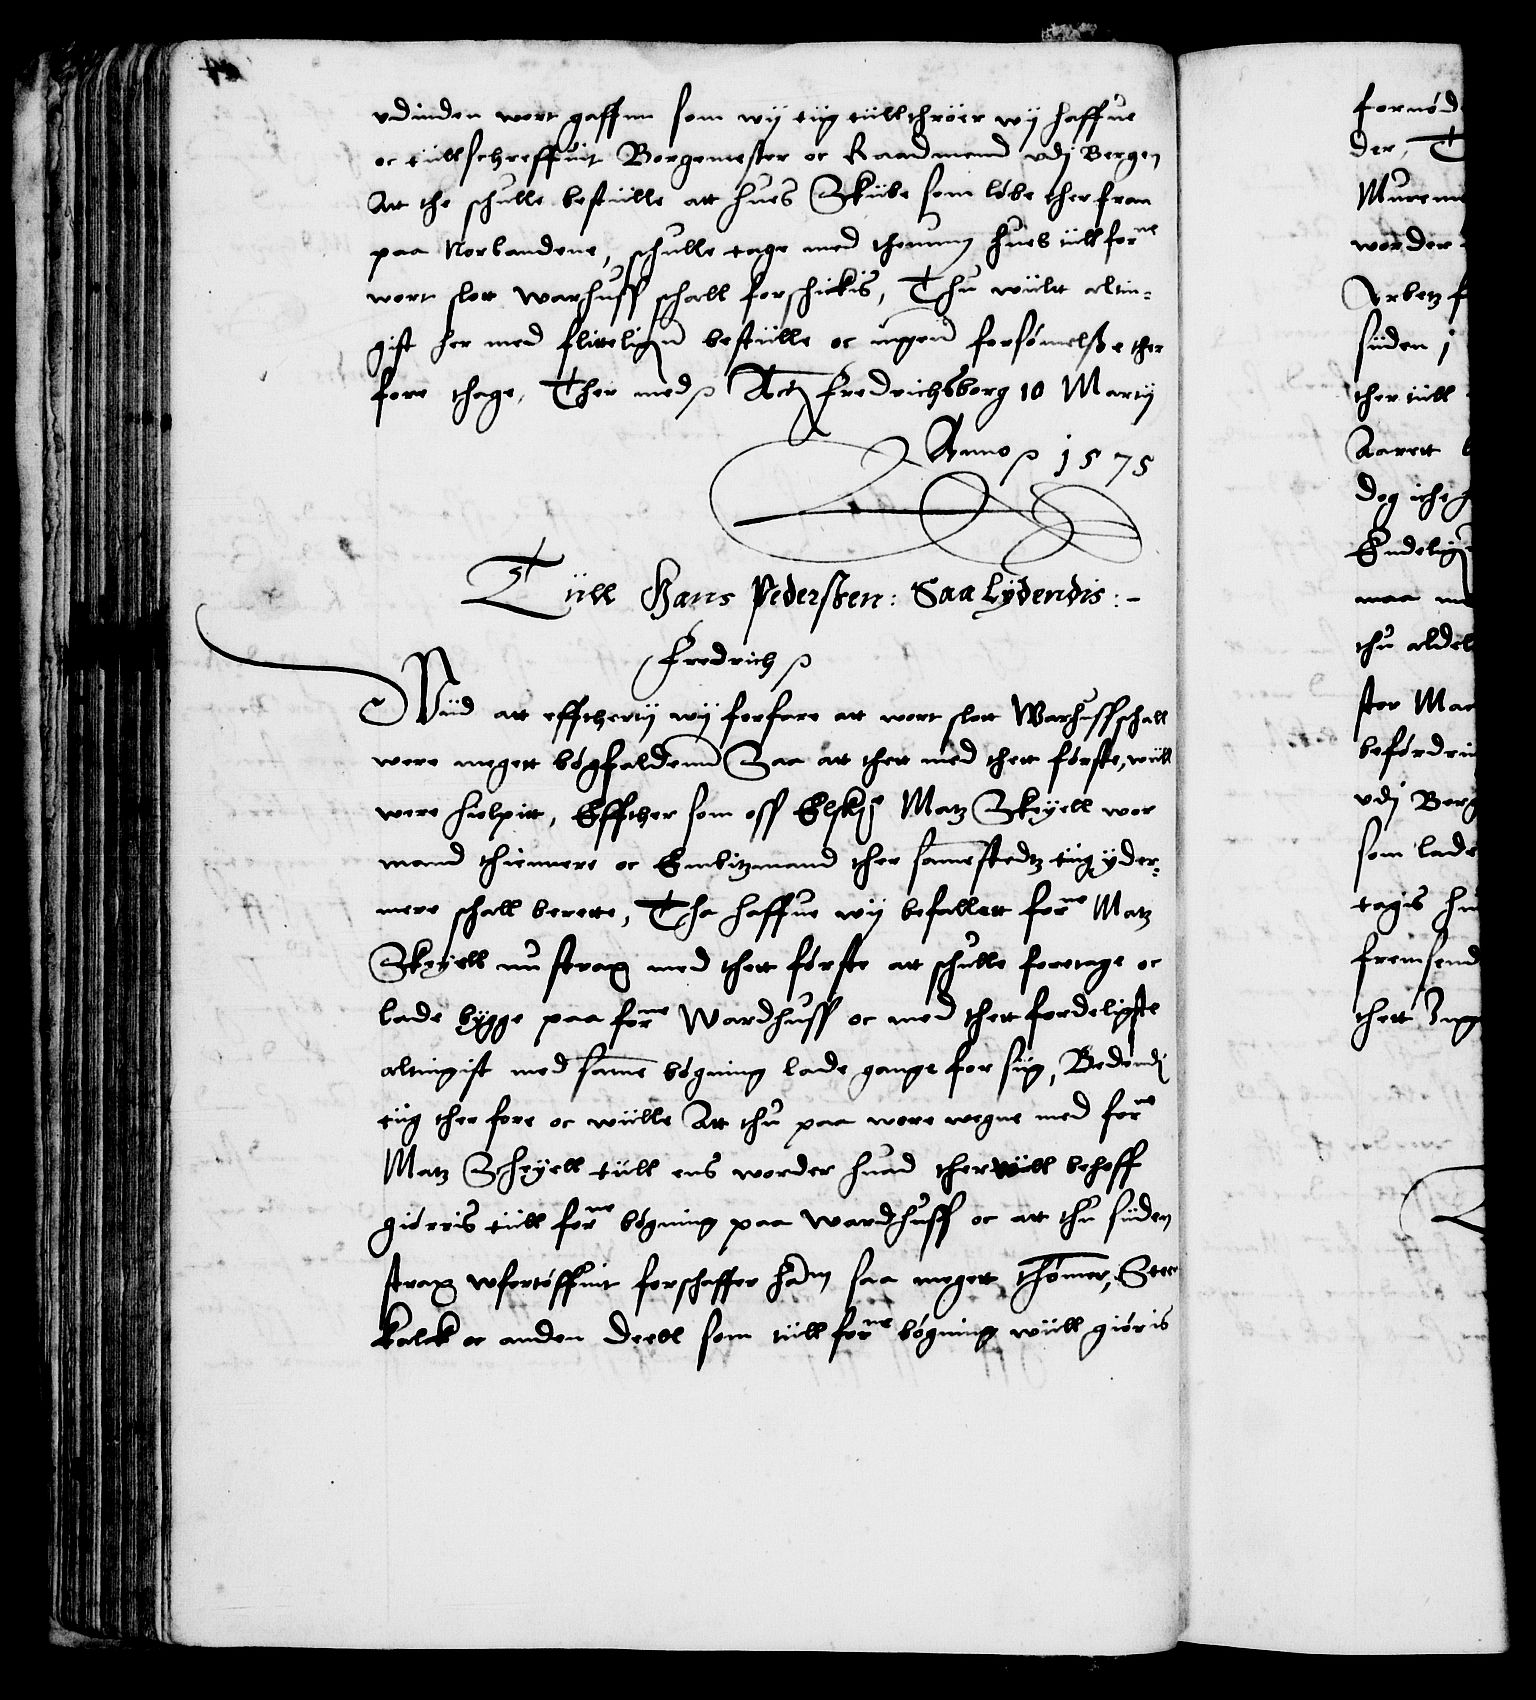 vdinden wort gaffnn som wij tiig tiill throer wij haffue
oc tiill schreffuit Borgemester oc Raadmend vdj Bergen
Att the schulle bestiille att hues Skiibe som løbe ther fraa
paa Norlandene, schulle tage med thenum hues tiill forne
wort slott Warhuss schall forschickis, Thu wiilt altin-
gist her med flitteligen bestiille oc ingen forsømelsse ther
fore thage, Ther med Actum Fredrichsborg 10 Martij
Anno 1575
Tiill Hans Pedersten: Saa Lydendis:-
Fredrich
Wiid att effttherty wij forfare att wort slott Warhuss schall
were megett bøgfaldenn Saa att thett med thett første, wiill
were hielpitt, Effther som oss Elskelig Matz Skeyell wor
mand thiennere oc Embitzmand ther samestedtz tiig yder-
mere schall berette, Tha haffue wij befallett forne Matz
Skeyell nu strax med thett første att schulle foretage oc
lade bygge paa forne Wardhuss oc med thett fordeligste
altingist med same bøgning lade gange for siig, Bedendj
tiig ther fore oc wiille Att thu paa wore wegne med forne
Matz Scheyell tiill ens worder huad ther wiill behoff
giøris tiill forne bøgning paa Wardhuss oc att thu siiden
strax wfortøffuit forschaffer ham saa megett thømer, Steen
kalck oc anden deell som tiill forne bøgning wiill giøris
fornød
der, T
Mureme
worder
Arbetz f
siiden j
ther tiill
Aarett
dog iche
Endelig
maa
thu aldel
ster Mae
befordrin
vdj Berg
som lade
tagis hu
fremsend
thett Ing